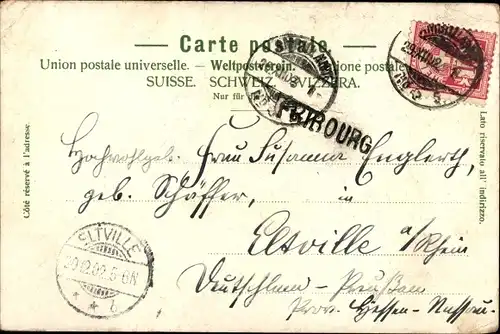 Carte postale.
Union postale universelle. — Weltpostverein. — Unione postale
SUISSE. SCHWEIZ. SVIZZERA.
Nur für
FRIBOURG
Côté réservé à l'adresse.
Lato riservato all' indirizzo.
Hochwohlgeb. Frau Susanna Englerth,
geb. Schäffer,
in
Eltville a/Rhein
Deutschland - Preußen
Prov. Hessen-Nassau.
ELTVILLE
30.12.02.5-6N
* * b